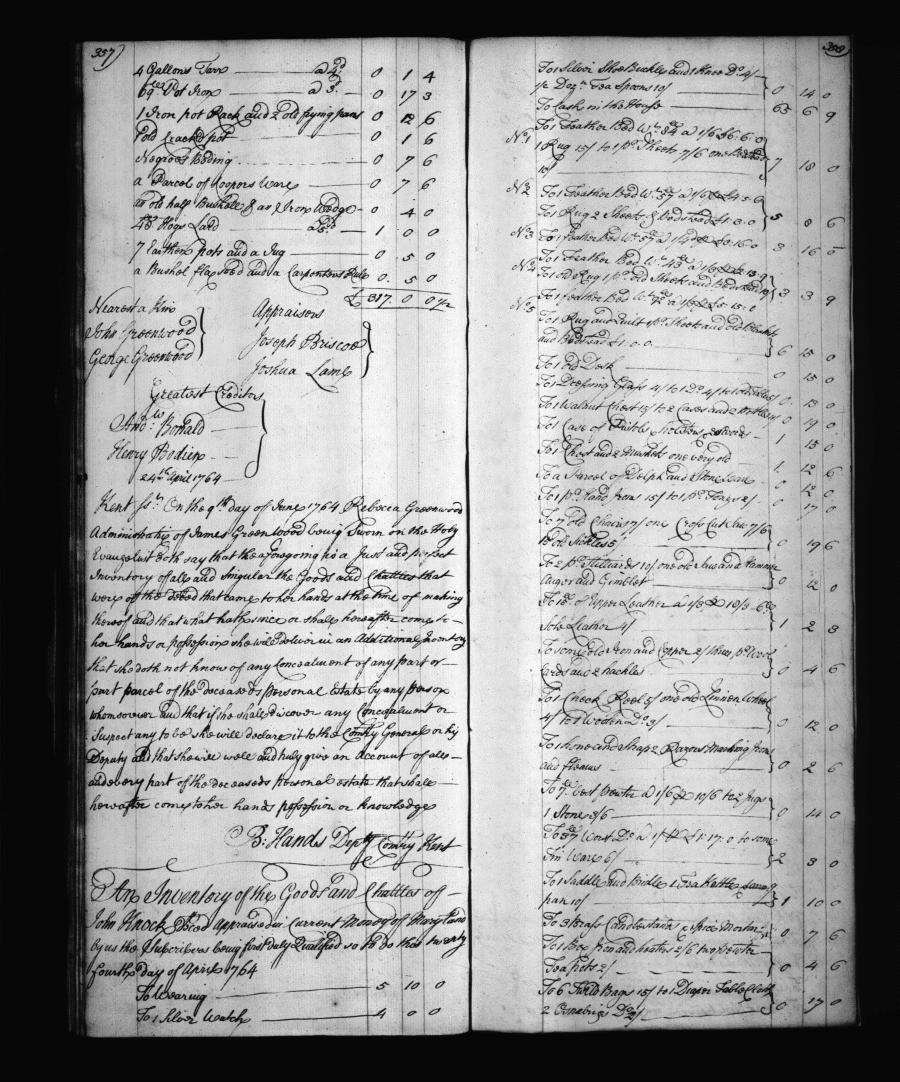 357
4 Gallons Tarr a 4d 0 1 4
69 lb Pot Iron a 3d 0 17 3
1 Iron pot Rack and 2 old frying pans 0 12 6
1 old crack'd pot 0 1 6
Negroes Beding 0 7 6
a Parcel of Coopers Ware 0 7 6
an old half Bushell & an Iron Wedge 0 4 0
48 Hogs Lard 1 0 0
7 Earthen pots and a Jug 0 5 0
a Bushel flax seed and a Carpenters Rule 0 5 0
£ 317 0 0½
Nearest a Kin
John Greenwood
George Greenwood
Appraisers
Joseph Briscoe
Joshua Lamb
Greatest Creditors
And:w Bonald
Henry Bodien
24th April 1764
Kent ss. On the 9th day of June 1764 Rebecca Greenwood
Administratrix of James Greenwood being Sworn on the Holy
Evangelist doth say that the aforegoing is a Just and perfect
Inventory of all and Singular the Goods and Chattles that
were of the deced that came to her hands at the time of making
thereof and that what hath since or shall hereafter come to
her hands or possession she will deliver in an Additional Inventory
that she doth not know of any Concealment of any part or
part parcel of the deceaseds personal Estate by any person
whomsoever and that if she shall discover any Concealment or
Suspect any to be she will declare it to the Comsry General or his
Deputy and that she will well and truly give an Account of all
and every part of the deceaseds personal estate that shall
hereafter come to her hands possession or knowledge
B: Hands Depty Comsry Kent
An Inventory of the Goods and Chattles of
John Knock Deced Appraised in Current Money of Maryland
by us the Subscribers being first duly Qualified so to do this twenty
fourth day of April 1764
To Wearing 5 10 0
To 1 Silver Watch 4 0 0
To 1 Silver Shoe Buckles and 1 Knee Do 4/
½ Dozn Tea Spoons 10/ 0 14 0
To Cash in the House 65 6 9
No 1 To 1 Feather Bed Wt 84 a 1/6 £6.6.0
1 Rug 15/ to 1 pr Sheets 7/6 one Bedsted
10/ 7 18 0
No 2 To 1 Feather Bed Wt 57 a 1/6 £4.5.6
To 1 Rug 2 Sheets & Bedstead £1.3.0 5 8 6
No 3 To 1 Feather Bed Wt 57 a 1/4 £3.16.0 3 16 0
No 4 To 1 Feather Bed Wt 43
To 1 old Rug 1 pr old Sheets and Bedstead 3 3 9
No 5 To 1 Feather Bed Wt £5.15.0
To 1 Rug and Quilt 1 pr Sheets and old Blanket
and Bedstead £1.0.0 6 15 0
To 1 Old Desk 0 15 0
To 1 Dressing Glass 4/ to 1 Do 4/ to 0 13 0
To 1 Walnut Chest 15/ to 2 Cases and 2 Bottles 4/ 0 19 0
To 1 Case of Pistols holsters & swords 1 15 0
To 1 Chest and 2 Muskets one very old 1 12 6
To a Parcel of Delph and Stone Ware 0 12 0
To 1 pr Hand Irons 15/ to 1 pr Tongs 2/ 0 17 0
To 7 old Chairs 7/ one Cross Cut Saw 7/6
old Sickles 5/ 0 19 6
To 2 pr Stilliards 10/ one old Saw and a Hammer
Auger and Gimblet 0 12 0
To of Upper Leather a 1/3
Sole Leather 4/ 1 2 3
To some old Iron and Copper 2/ three pr Wool
Cards and 2 hackles 0 4 6
To 1 Check Reel 5/ one old Linnen Wheel
4/ to 1 Wooden Do 3/ 0 12 0
To 1 hone and Strap 2 Razors Marking Irons
and fleams 0 2 6
To 7 lb best Pewter a 1/6 10/6 to 2 Jugs
1 Stone 3/6 0 14 0
To 37 Worst Do a 1/ £1.17.0 to some
Tin Ware 6/ 2 3 0
To 1 Saddle and Bridle 1 Tea Kettle
pan 10/ 1 10 0
To 3 Brass Candlesticks & Spice Mortar 0 7 6
To 1 Box Iron and heaters 2/6 two Pewter
Tea pots 2/ 0 4 6
To 6 Field Bags 15/ to 1 Diaper Table Cloth
2 Oznabrigs Do 2/ 0 17 0